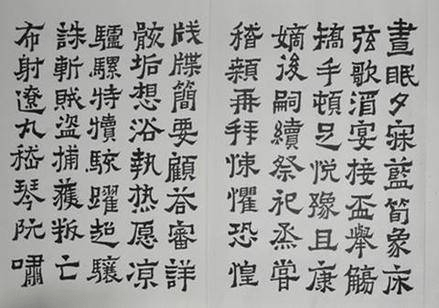 晝眠夕寐藍筍象床
弦歌酒宴接盃舉觴
矯手頓足悅豫且康
嫡後嗣續祭祀烝嘗
稽顙再拜悚懼恐惶
牋牒簡要顧荅審詳
骸垢想浴執热愿凉
驢騾特犢駭躍超驤
誅斬賊盜捕獲叛亡
布射遼丸嵇琴阮嘯